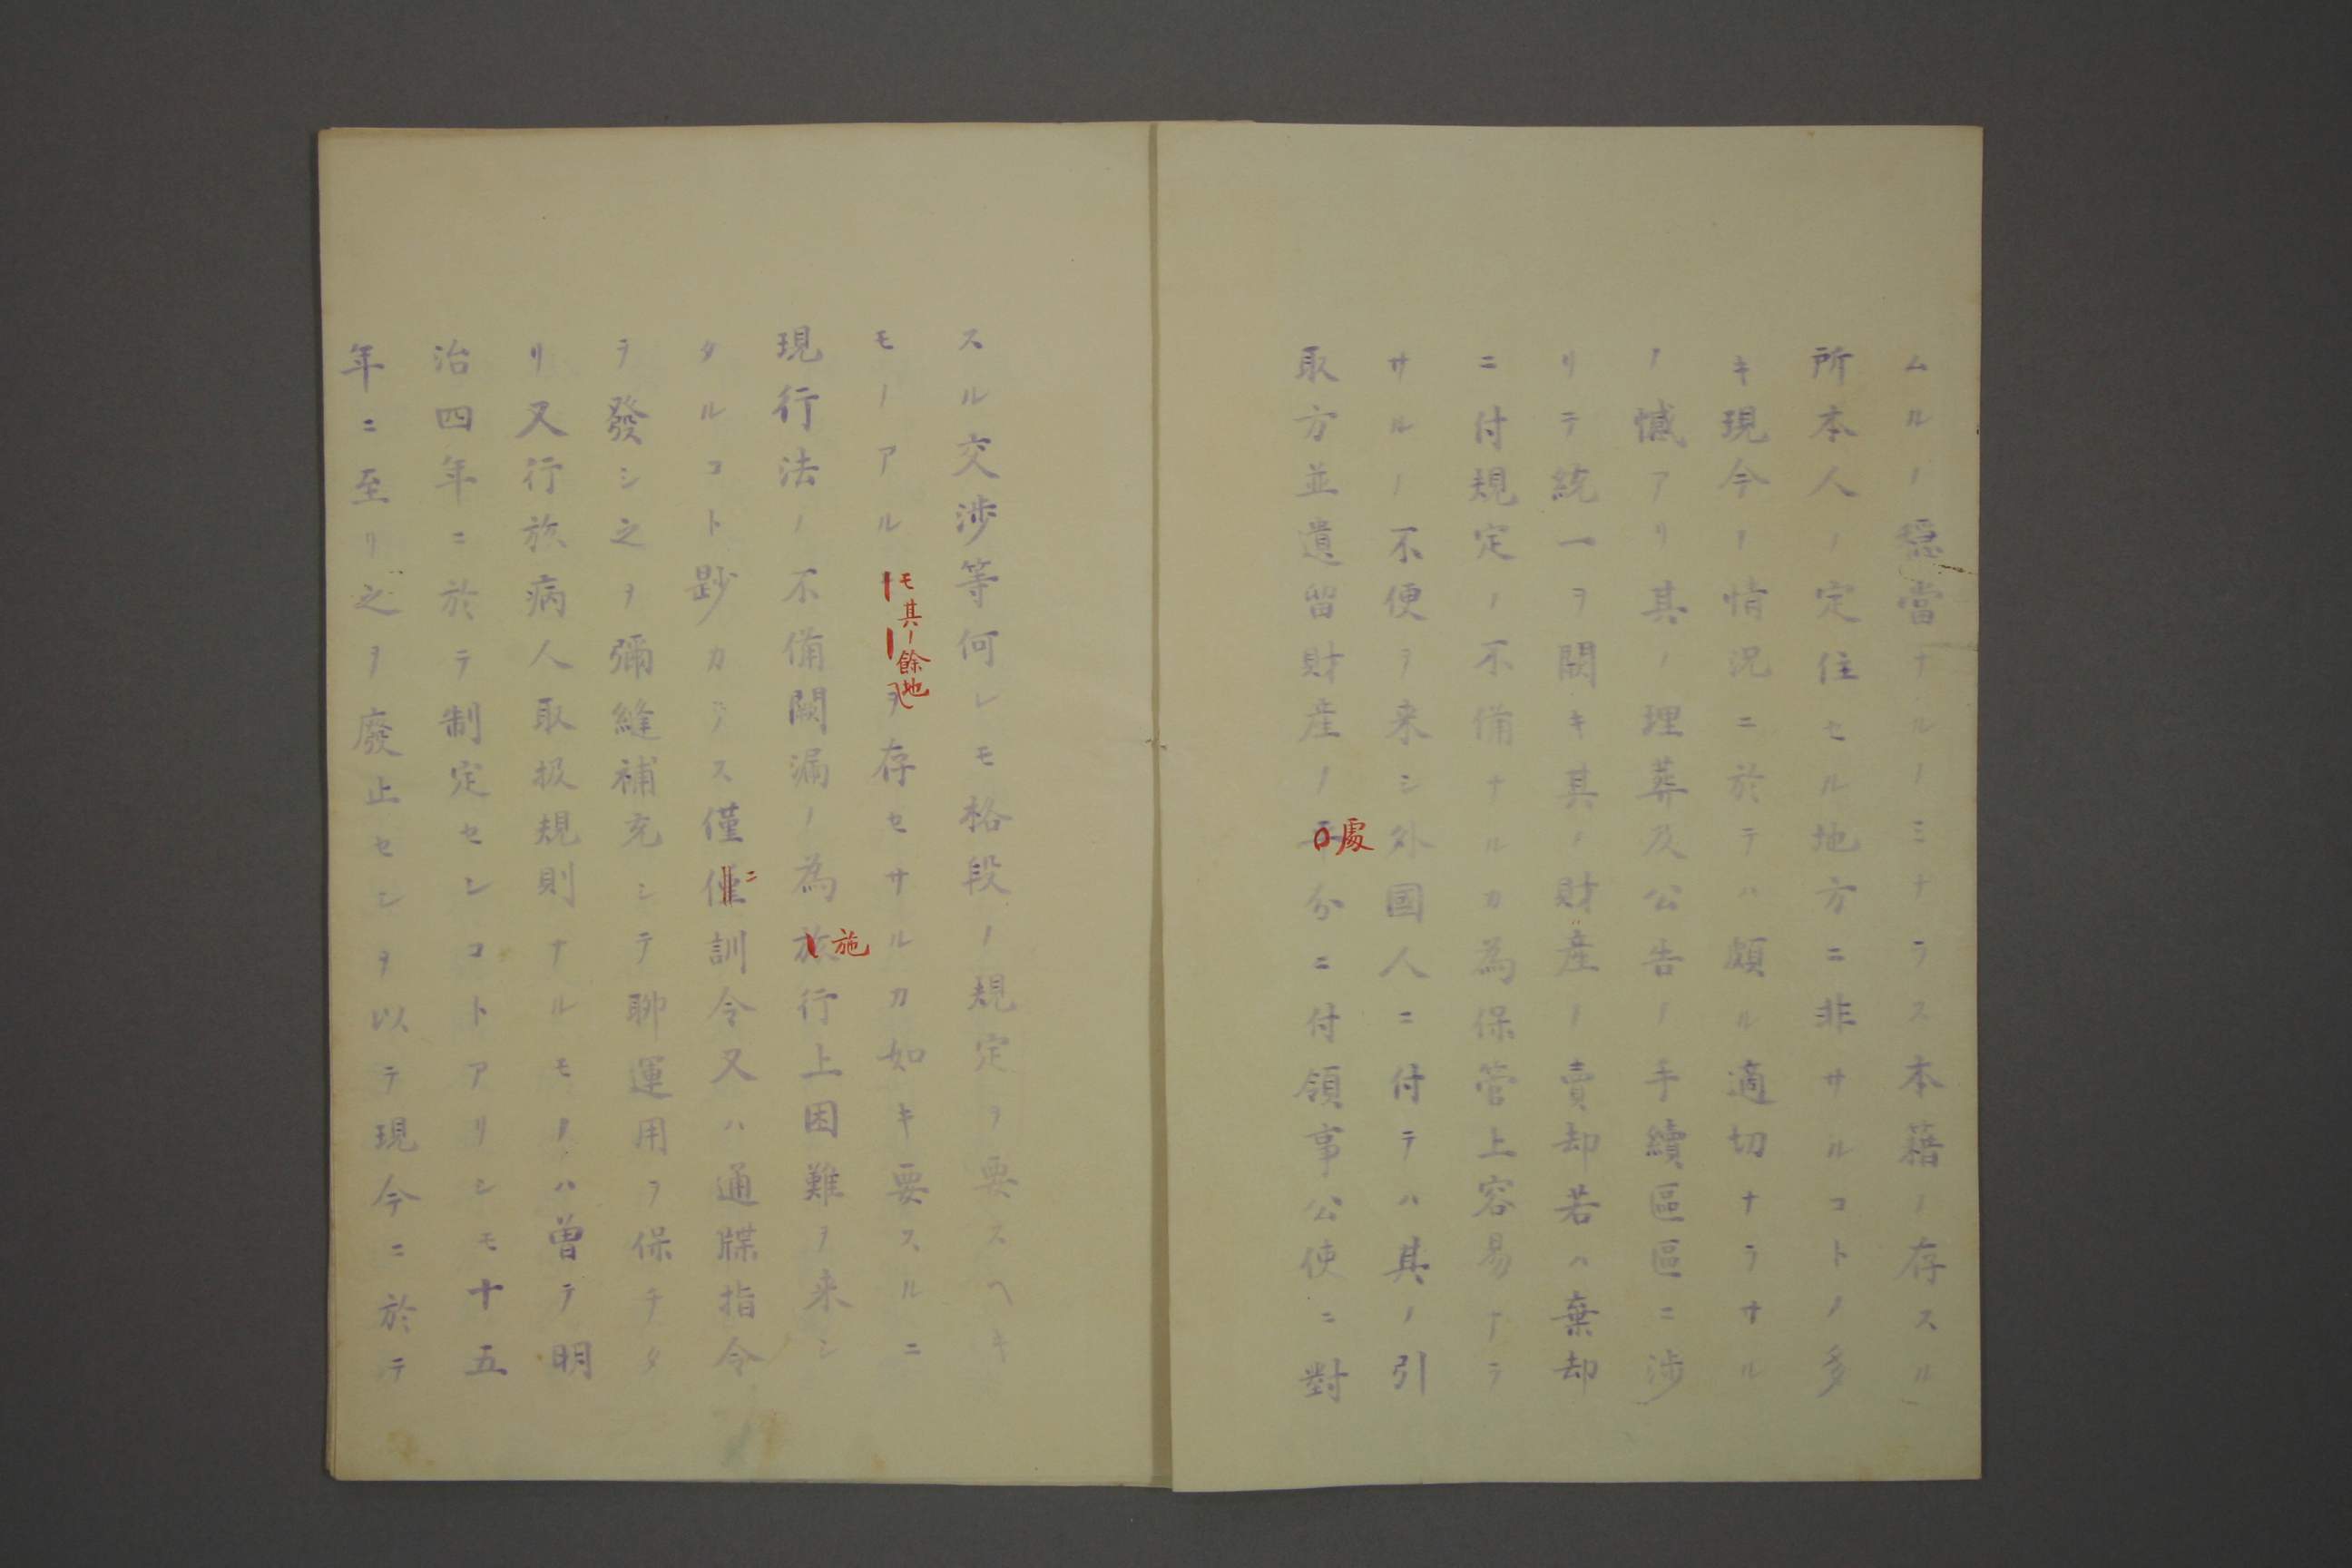 ムルノ穏當ナルノミナラス本籍ノ存スル
所本人ノ定住セル地方ニ非サルコトノ多
キ現今ノ情况ニ於テハ頗ル適切ナラサル
ノ憾アリ其ノ理葬及公告ノ手續區區ニ涉
リテ統一ヲ闕キ其ノ財産ノ賣却若ハ棄却
ニ付規定ノ不備ナルカ為保管上容易ナラ
サルノ不便ヲ来シ外国人ニ付テハ其ノ引
取方並遺留財産ノ處分ニ付領事公使ニ對
スル交渉等何レモ格段ノ規定ヲ要スヘキ
モノアルモ其ノ餘地ヲ存セサルカ如キ要スルニ
現行法ノ不備闕漏ノ為施行上困難ヲ来シ
タルコト尠カラス僅ニ訓令又ハ通牒指令
ヲ發シ之ヲ彌縫補充シテ聊運用ヲ保チタ
リ又行旅病人取扱規則ナルモノハ曽テ明
治四年ニ於テ制定セシコトアリシモ十五
年ニ至リ之ヲ廢止セシヲ以テ現今ニ於テ